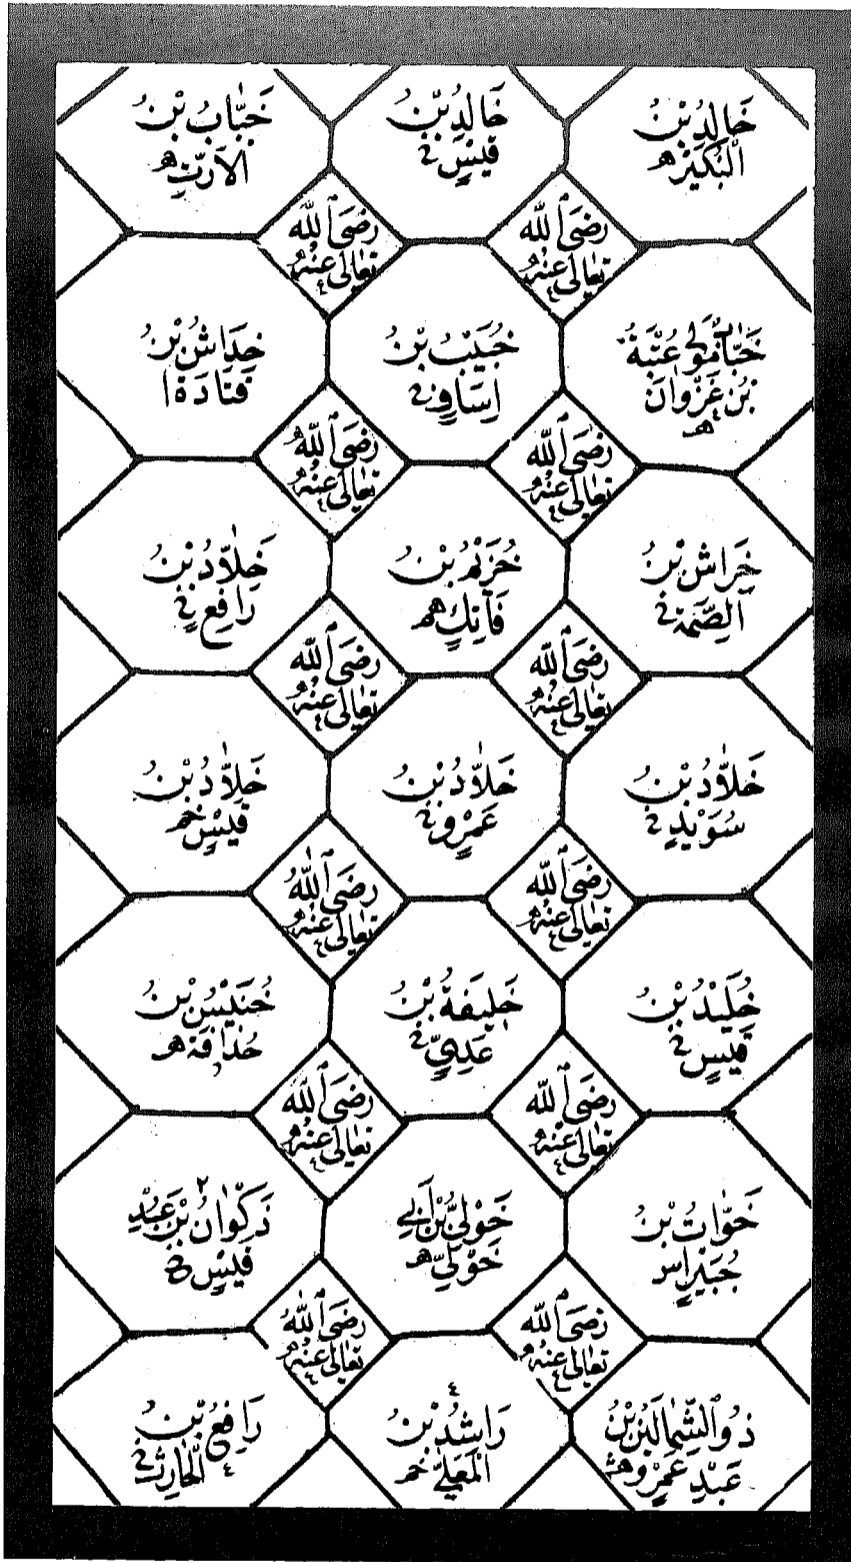 خَالِدُ بْنُ
الْبُكَيْرِ هـ
خَالِدُ بْنُ
قَيْسٍ خ
خَبَّابُ بْنُ
الْاَرَتِّ هـ
رَضِىَ ٱللّٰه
تَعَالٰى عَنْهُ
رَضِىَ ٱللّٰه
تَعَالٰى عَنْهُ
خَبَّابْ مَوْلٰى عُتْبَةَ
بْنِ غَزْوَانَ
هـ
خُبَيْبُ بْنُ
اِسَافٍ خ
خِدَاشُ بْنُ
قَتَادَةَ ا
رَضِىَ ٱللّٰه
تَعَالٰى عَنْهُ
رَضِىَ ٱللّٰه
تَعَالٰى عَنْهُ
خِرَاشُ بْنُ
ٱلصِّمَّةِ خ
خُرَيْمُ بْنُ
فَاتِكٍ هم
خَلَّادُ بْنُ
رَافِعٍ خ
رَضِىَ ٱللّٰه
تَعَالٰى عَنْهُ
رَضِىَ ٱللّٰه
تَعَالٰى عَنْهُ
خَلَّادُ بْنُ
سُوَيْدٍ خ
خَلَّادُ بْنُ
عَمْرٍو خ
خَلَّادُ بْنُ
قَيْسٍ خم
رَضِىَ ٱللّٰه
تَعَالٰى عَنْهُ
رَضِىَ ٱللّٰه
تَعَالٰى عَنْهُ
خُلَيْدُ بْنُ
قَيْسٍ خ
خَلِيفَةُ بْنُ
عَدِيٍّ خ
خُنَيْسُ بْنُ
حُذَافَةَ هـ
رَضِىَ ٱللّٰه
تَعَالٰى عَنْهُ
رَضِىَ ٱللّٰه
تَعَالٰى عَنْهُ
خَوَّاتُ بْنُ
جُبَيْرٍ اس
خَوْلِيُّ بْنُ اَبِي
خَوْلِيٍّ هـ
ذَكْوَانُ ٢ بْنُ عَبْدِ
قَيْسٍ
رَضِىَ ٱللّٰه
تَعَالٰى عَنْهُ
رَضِىَ ٱللّٰه
تَعَالٰى عَنْهُ
ذُو ٱلشِّمَالَيْنِ بْنُ
عَبْدِ عَمْرٍو هش
رَاشِدُ ٤ بْنُ
الْمُعَلّٰى خم
رَافِعُ بْنُ
الْحَارِثِ ٤ خ